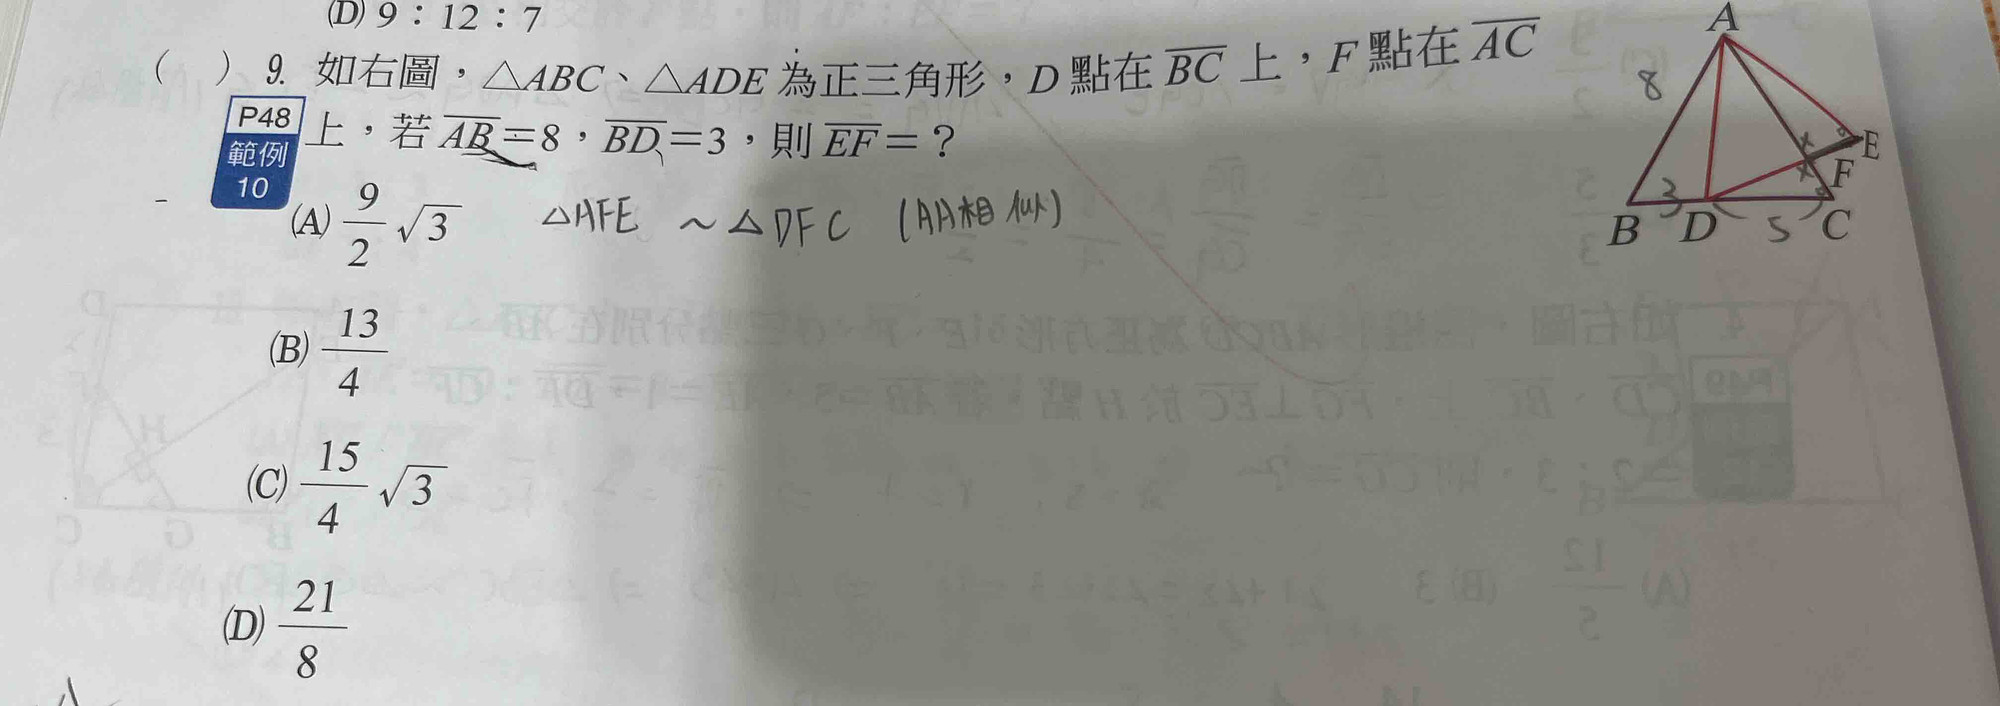 (D) 9：12：7
(　) 9. 如右圖，△ABC、△ADE 為正三角形，D 點在 BC 上，F 點在 AC
P48
範例
10
上，若 AB＝8，BD＝3，則 EF＝？
(A) 9/2 √3
△AFE ～△DFC (AA相似)
(B) 13/4
(C) 15/4 √3
(D) 21/8
A
8
E
F
3
B D 5 C